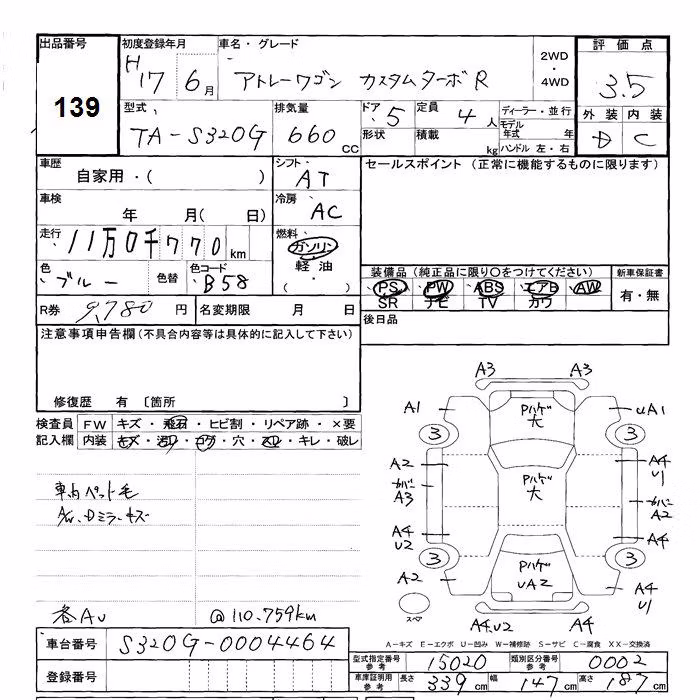 出品番号
139
初度登録年月
H17 6月
車名・グレード
アトレーワゴン カスタムターボR
2WD
・
4WD
評価点
3.5
外装 内装
D C
型式
TA-S320G
排気量
660 CC
ドア 5
定員 4人
形状
積載 kg
ディーラー・並行
モデル年式 年
ハンドル 左・右
車歴
自家用・( )
シフト
AT
車検
年 月( 日)
冷房
AC
走行
11万0千770km
燃料
ガソリン
軽油
( )
色
ブルー
色替
色コード
B58
R券 9,780円
名変期限 月 日
セールスポイント (正常に機能するものに限ります)
装備品(純正品に限り○をつけてください)
PS PW ABS エアB AW
SR ナビ TV カワ
新車保証書
有・無
後日品
注意事項申告欄(不具合内容等は具体的に記入して下さい)
修復歴 有 〔箇所 〕
検査員
記入欄
FW キズ・飛石・ヒビ割・リペア跡・×要
内装 キズ・汚レ・コゲ・穴・スレ・キレ・破レ
車内ペット毛
A/w、Dミラーキズ
各AU
@110.759km
車台番号 S320G-0004464
登録番号
A3 A3
A1 Pハゲ大 UA1
3 3
A2 A4 U1
カバーA3 Pハゲ大 カバーA2
A4 U2 A4
3 Pハゲ UA2 3
A2 A4 U1
スペア
A4.U2 A4
A-キズ E-エクボ U-凹み W-補修跡 S-サビ C-腐食 XX-交換済
型式指定番号 参考 15020
類別区分番号 参考 0002
車庫証明用 参考 長さ 339cm 幅 147cm 高さ 187cm